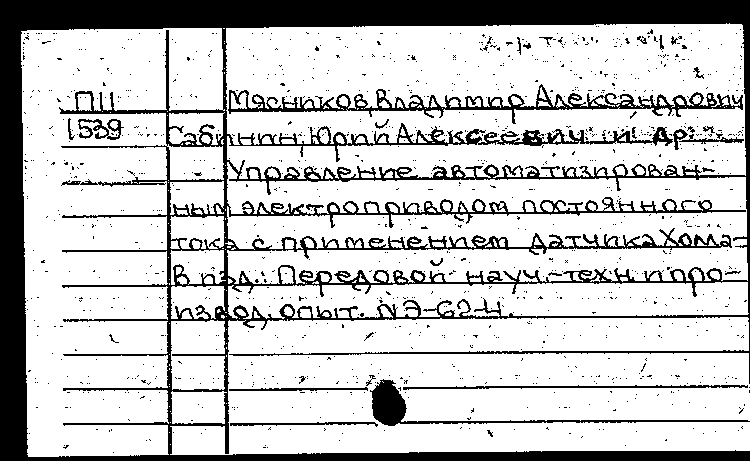 П11
1539
Мясников, Владимир Александрович
Сабинин, Юрий Алексеевич и др.
Управление автоматизирован-
ным электроприводом постоянного
тока с применением датчика Хома-
В изд.: Передовой науч.-техн. и про-
извод. опыт. № Э-62-4.